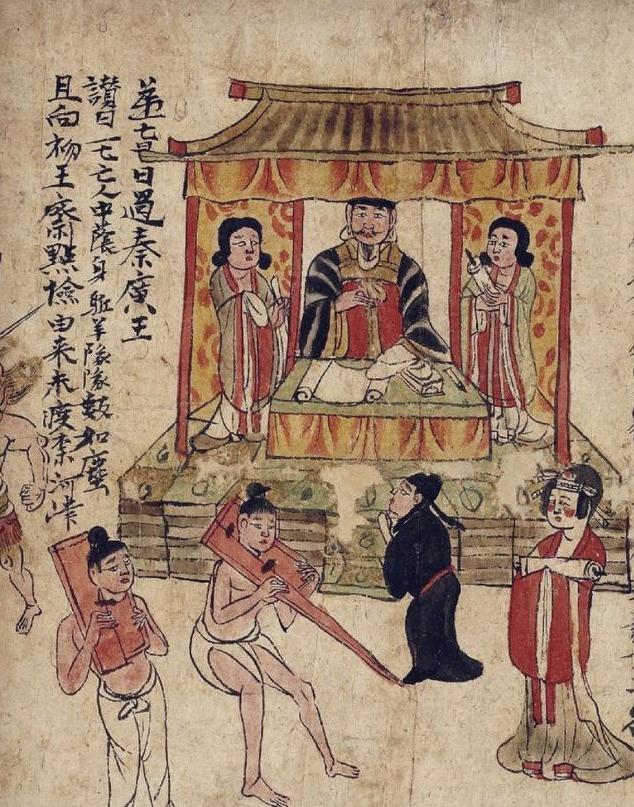 苐一七日過秦廣王
讃曰 一七亡人中蔭身 駈羊隊隊數如塵
且向初王齋點撿 由来未渡柰河津